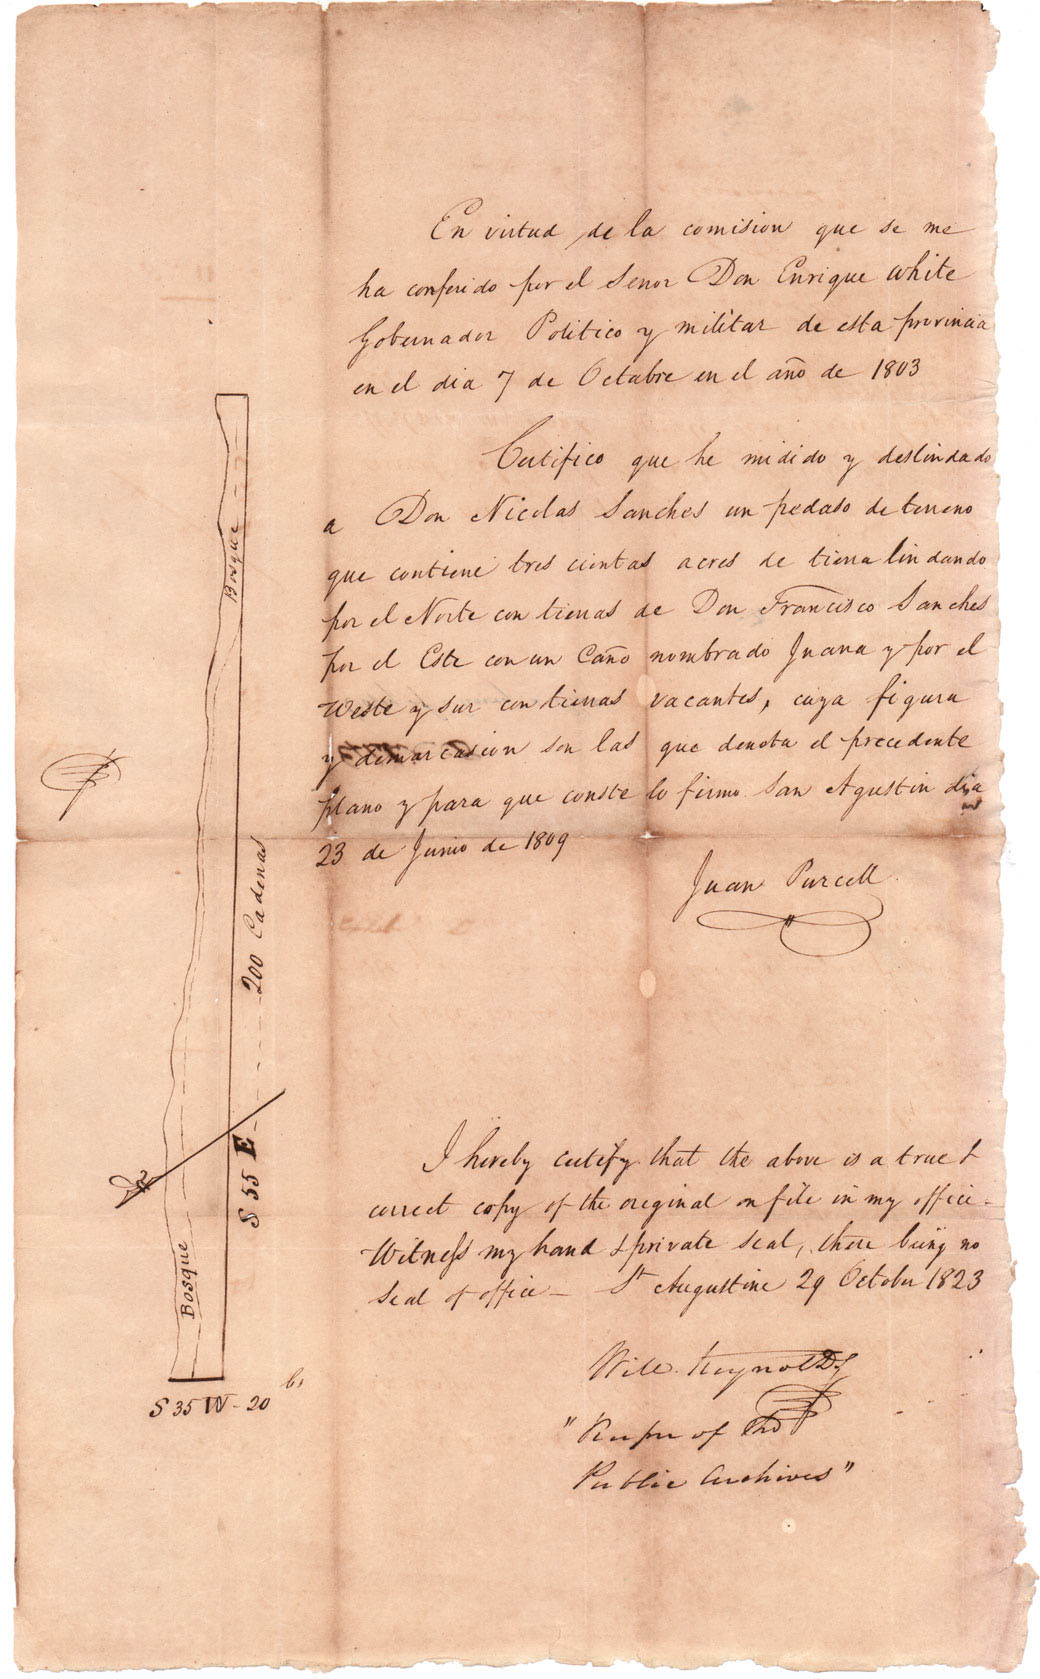 En virtud de la comision que se me
ha conferido por el Senor Don Enrique white
Gobernador Politico y militar de esta provincia
en el dia 7 de Octubre en el año de 1803
Certifico que he midido y deslindado
a Don Nicolas Sanches un pedaso de terreno
que contiene tres cientas acres de tierra lindando
por el Norte con tierras de Don Francisco Sanches
por el Este con un Caño nombrado Juana y por el
Weste y sur con tierras vacantes, cuya figura
y demarcasion son las que denota el precedente
plano y para que conste lo firmo San Agustin dia
23 de Junio de 1809
Juan Purcell
Bosque
200 Cadenas
S 55 E
Bosque
S 35 W - 20
I hereby certify that the above is a true &
correct copy of the original on file in my office -
Witness my hand & private seal, there being no
seal of office - St Augustine 29 October 1823
Will. Reynolds
"Keeper of the
Public Archives"